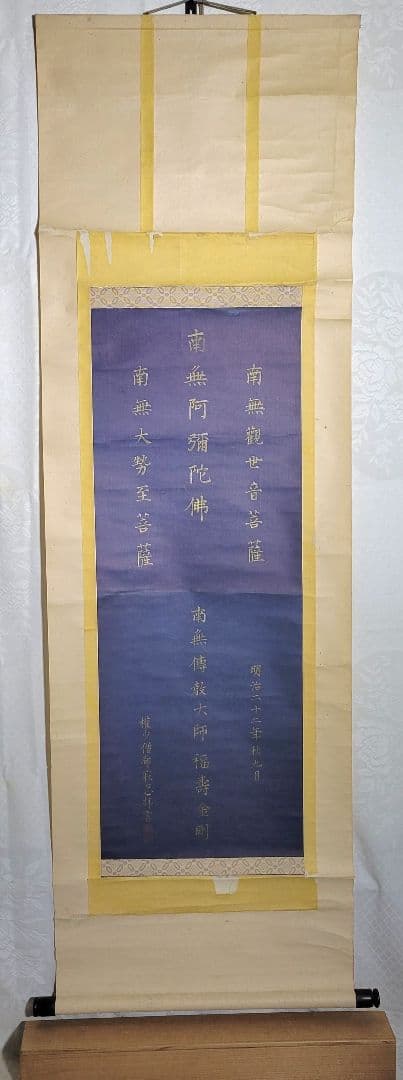 南無觀世音菩薩
南無阿彌陀佛
南無大勢至菩薩
南無傳敎大師福壽金剛
明治二十二年秋九月
權少僧都